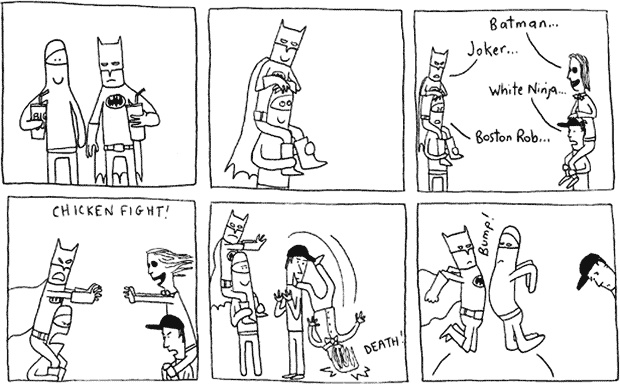 BIG
Batman...
Joker...
White Ninja...
Boston Rob...
CHICKEN FIGHT!
DEATH!
Bump!